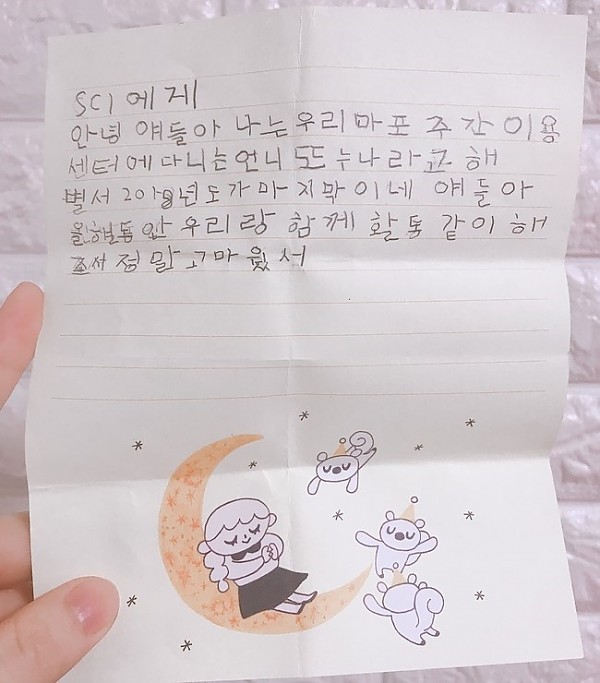 SCI에게
안녕 얘들아 나는 우리마포 주간이용
센터에다니는언니 또는 누나라고 해
벌서 2018년도가 마지막이네 얘들아
올해동안 우리랑 함께 활동 같이 해
조서 정말고마웠서